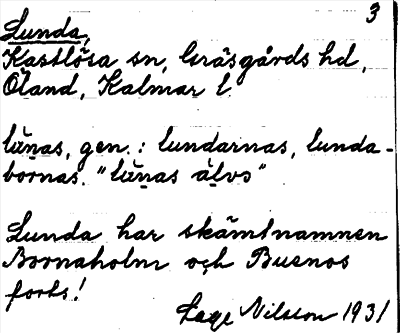 3
Lunda,
Kastlösa sn, Gräsgårds hd,
Öland, Kalmar l.
lūn̥as, gen.: lundarnas, lunda-
bornas. "lūn̥as älvs"
Lunda har skämtnamnen
Bornaholm och Buenos
forts!
Nilsson 1931